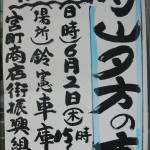 山夕方の
日時6月2日(木)15時
場所鈴憲車庫
宮町商店街振興組